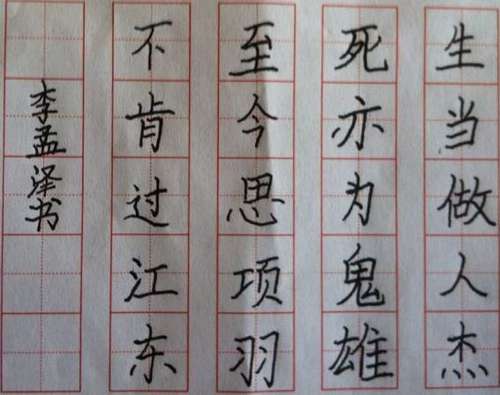 生当做人杰
死亦为鬼雄
至今思项羽
不肯过江东
李孟泽书